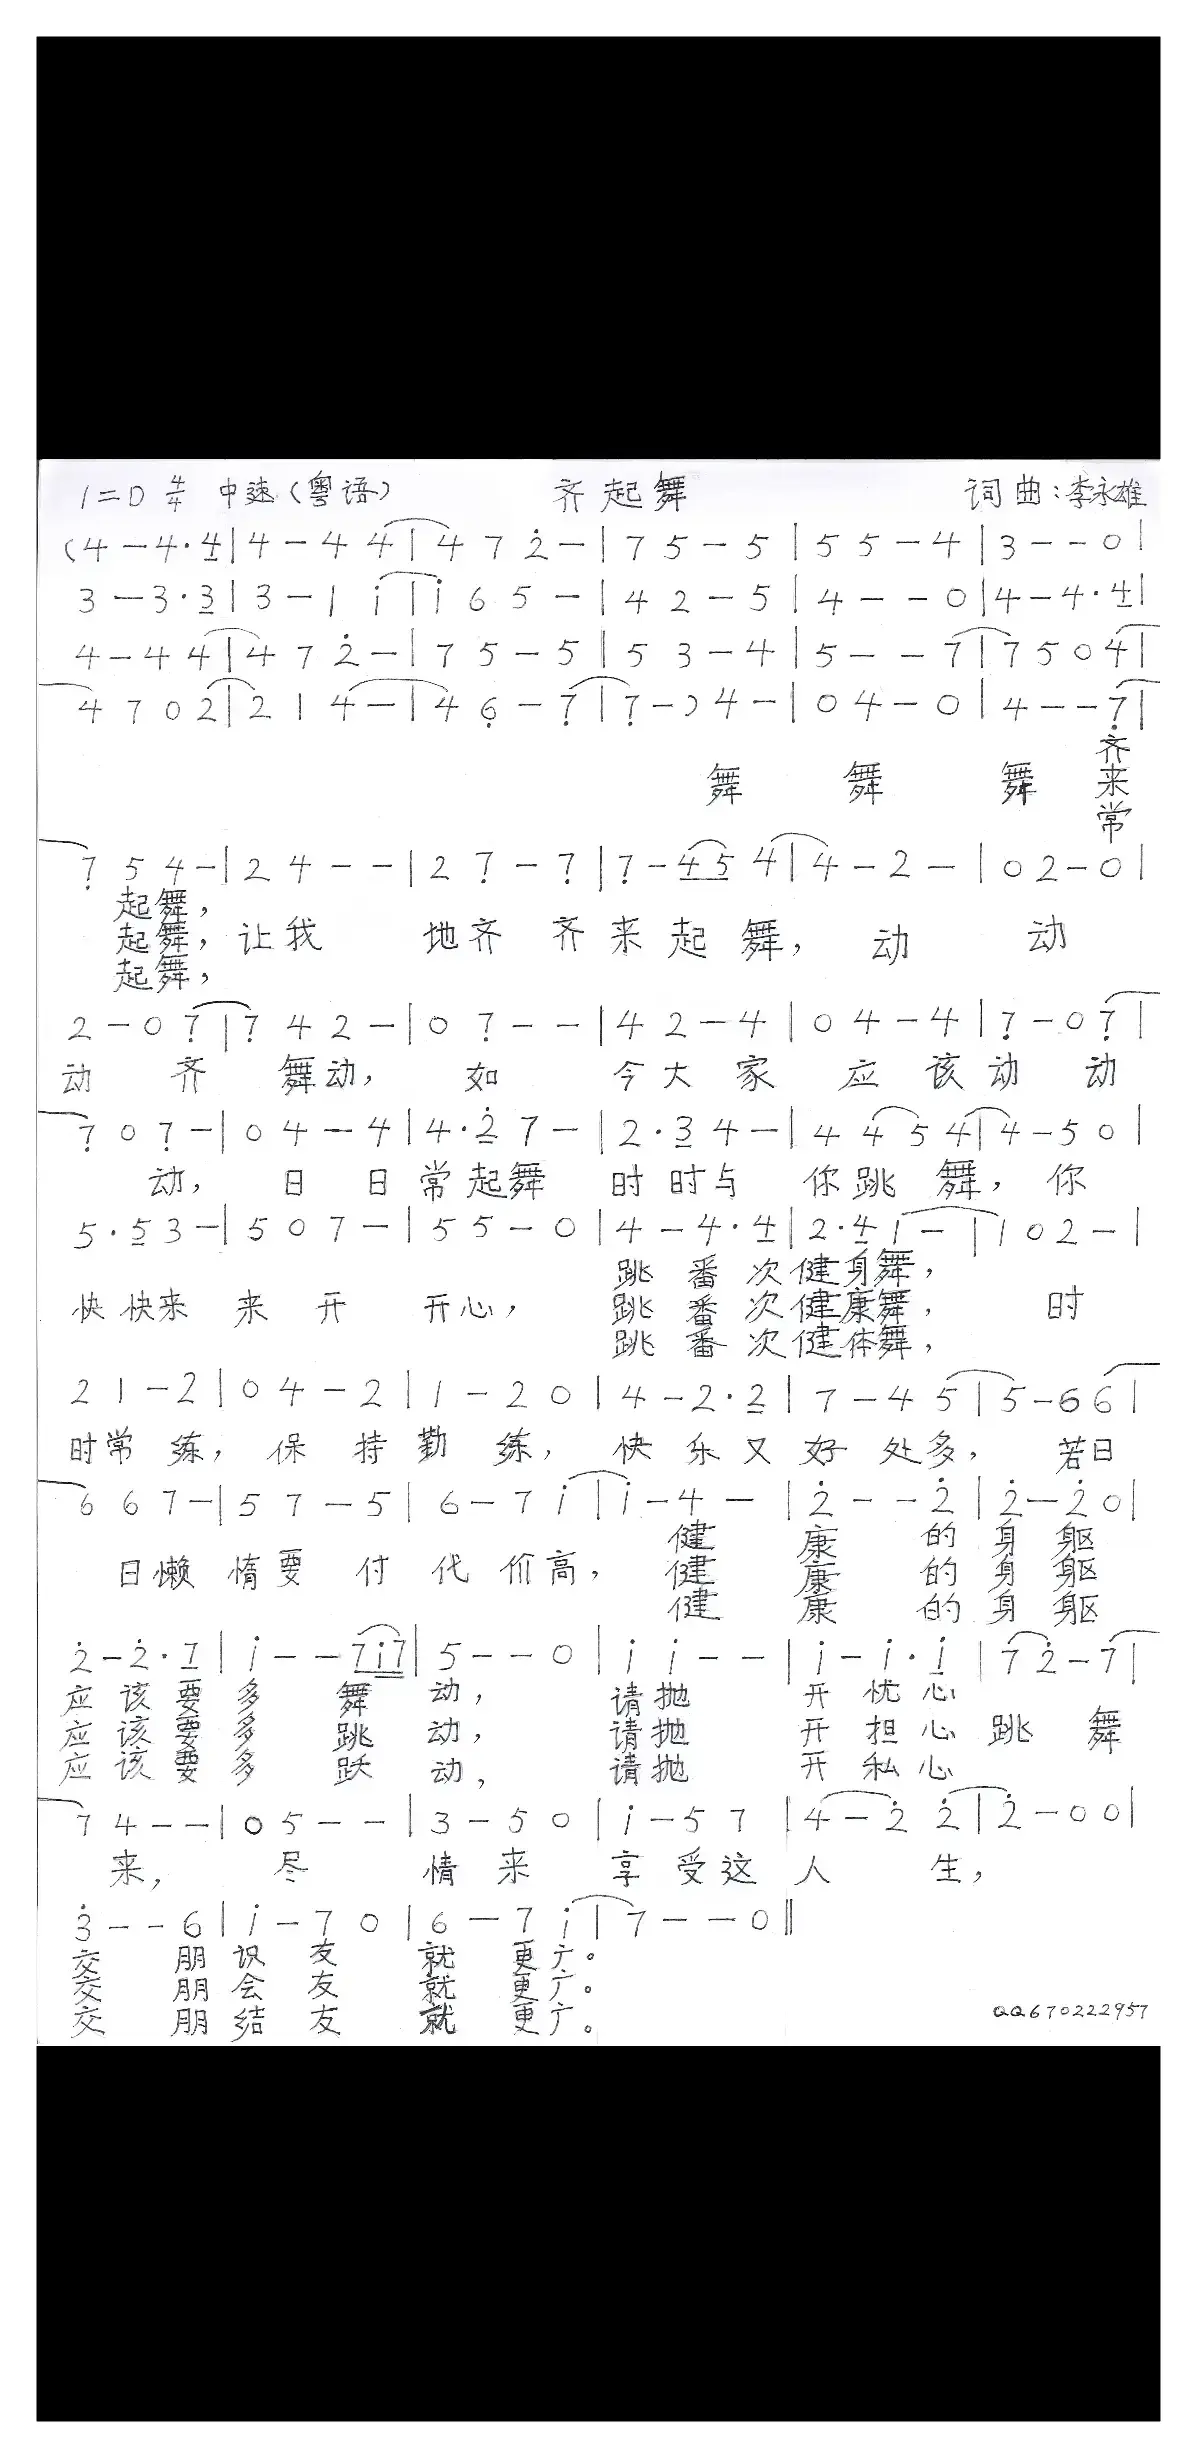 1=D 4/4 中速(粤语) 齐起舞 词曲:李永雄
(4－4·4|4－44|472̇－|75－5|55－4|3－－0|
3－3·3|3－1i̇|i̇65－|42－5|4－－0|4－4·4|
4－44|472̇－|75－5|53－4|5－－7|7504|
4702|214－|46̣－7̣|7̣－)4－|04－0|4－－7̣|
齐
舞 舞 舞 来
常
7̣54－|24－－|27̣－7̣|7̣－454|4－2－|02－0|
起舞,
起舞,让我 地齐 齐来起舞,动 动
起舞,
2－07̣|7̣42－|07̣－－|42－4|04－4|7̣－07̣|
动 齐 舞动, 如 今大家 应该动 动
7̣07̣－|04－4|4·2̇7－|2·34－|4454|4－50|
动, 日 日常起舞 时时与 你跳舞, 你
5·53－|507－|55－0|4－4·4|2·41－|102－|
跳番次健身舞,
快快来 来 开 开心, 跳番次健康舞, 时
跳番次健体舞,
21－2|04－2|1－20|4－2·2|7－45|5－66|
时常练, 保持勤练, 快乐又好处多, 若日
667－|57－5|6－7i̇|i̇－4－|2̇－－2̇|2̇－2̇0|
健 康 的身躯
日懒惰要付代价高, 健 康 的身躯
健 康 的身躯
2̇－2̇·7|i̇－－7i̇7|5－－0|i̇i̇－－|i̇－i̇·i̇|72̇－7|
应该要多 舞 动, 请抛 开忧心
应该要多 跳 动, 请抛 开担心跳 舞
应该要多 跃 动, 请抛 开私心
74－－|05－－|3－50|i̇－57|4－2̇2̇|2̇－00|
来, 尽 情来 享受这人 生,
3̇－－6|i̇－70|6－7i̇|7－－0‖
交 朋识友 就 更广。
交 朋会友 就 更广。
交 朋结友 就 更广。
QQ670222957